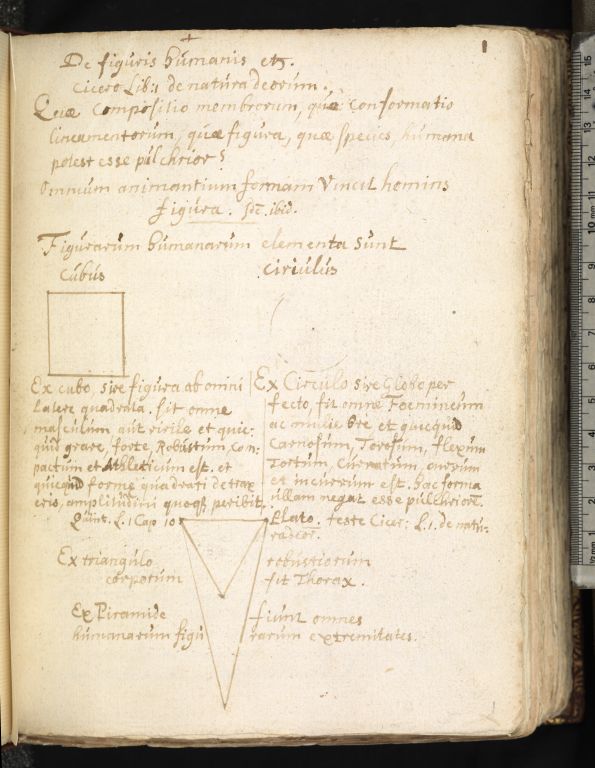 1
De figuris humanis etc.
Cicero Lib: 1 de natura deorum.
Quae Compositio membrorum, quae Conformatio
lineamentorum, quae figura, quae species, humana
potest esse pulchrior?
Omnium animantium formam Vincit hominis
figura. Idē. ibid.
Figurarum humanarum elementa sunt
Cubus
Circulus
Ex cubo, sive figura ab omni
Latere quadrata. fit omne
masculum aut virile et quic-
quid grave, forte, Robustum, Com-
pactum et Athleticum est. et
quicquid forme quadrati detrax-
eris, amplitudini quoq; peribit.
Quint. L. 1 Cap 10
Ex Circulo sive Globo per
fecto, fit omne Foemineum
ac muliebre et quicquid
Carnosum, Torosum, flexum
Tortum, Curvatum,
et incurvum est. hac forma
ullam negat esse pulchriorē.
Plato. teste Cicer: L. 1. de natu-
ra deor.
Ex triangulo robustiorum
corporum fit Thorax.
Ex Piramide fiunt omnes
humanarum figurarum extremitates.
15
14
13
12
11
10
9
8
7
6
5
4
3
2
1